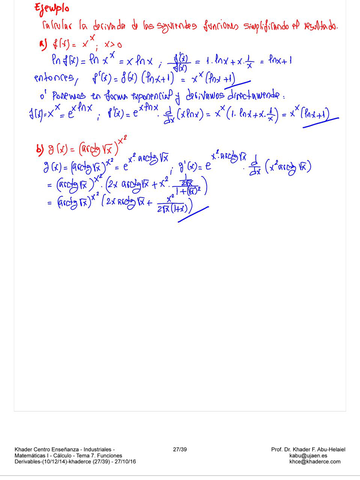 Ejemplo
Calcular la derivada de las siguientes funciones simplificando el resultado.
a) f(x) = x^x ; x>0
ln f(x) = ln x^x = x ln x ; f'(x)/f(x) = 1·ln x + x·1/x = ln x + 1
entonces, f'(x) = f(x)(ln x + 1) = x^x (ln x + 1)
o' Ponemos en forma exponencial y derivamos directamente:
f(x) = x^x = e^{x ln x} ; f'(x) = e^{x ln x} · d/dx (x ln x) = x^x (1·ln x + x·1/x) = x^x (ln x + 1)
b) g(x) = (arctg √x)^{x²}
g(x) = (arctg √x)^{x²} = e^{x² arctg √x} ; g'(x) = e^{x² arctg √x} · d/dx (x² arctg √x)
= (arctg √x)^{x²} · (2x arctg √x + x² · (1/2√x)/(1+(√x)²))
= (arctg √x)^{x²} (2x arctg √x + x²/(2√x(1+x)))
Khader Centro Enseñanza - Industriales - 27/39 Prof. Dr. Khader F. Abu-Helaiel
Matemáticas I - Cálculo - Tema 7. Funciones kabu@ujaen.es
Derivables-(10/12/14)-khaderce (27/39) - 27/10/16 khce@khaderce.com